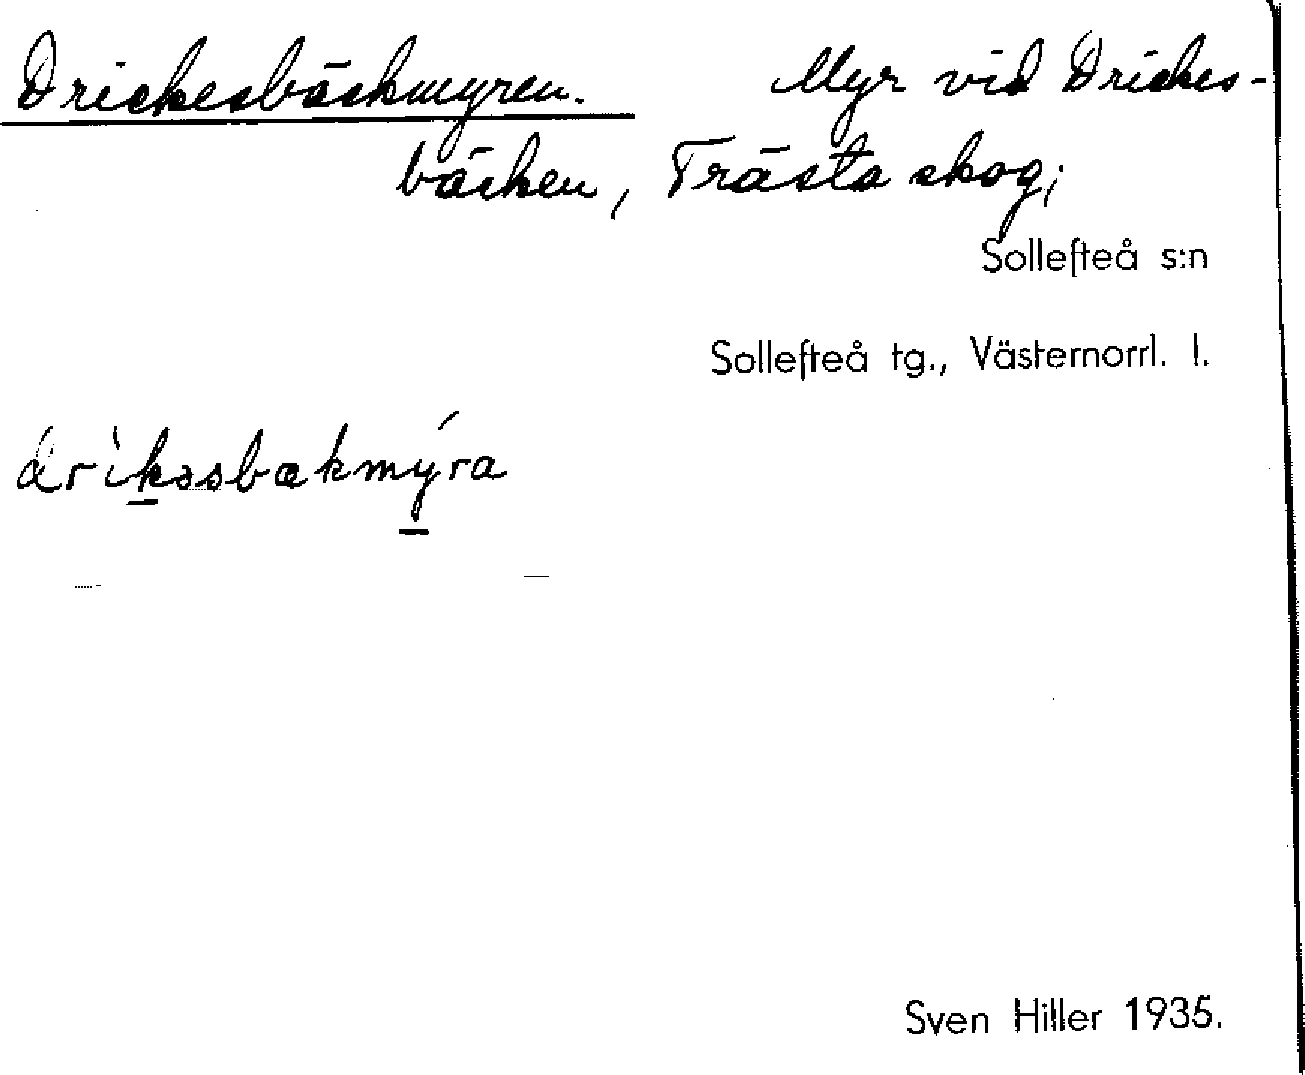 Drickesbäckmyren. Myr vid Drickes-
bäcken, Trästa skog;
Sollefteå s:n
Sollefteå tg., Västernorrl. l.
Sven Hiller 1935.